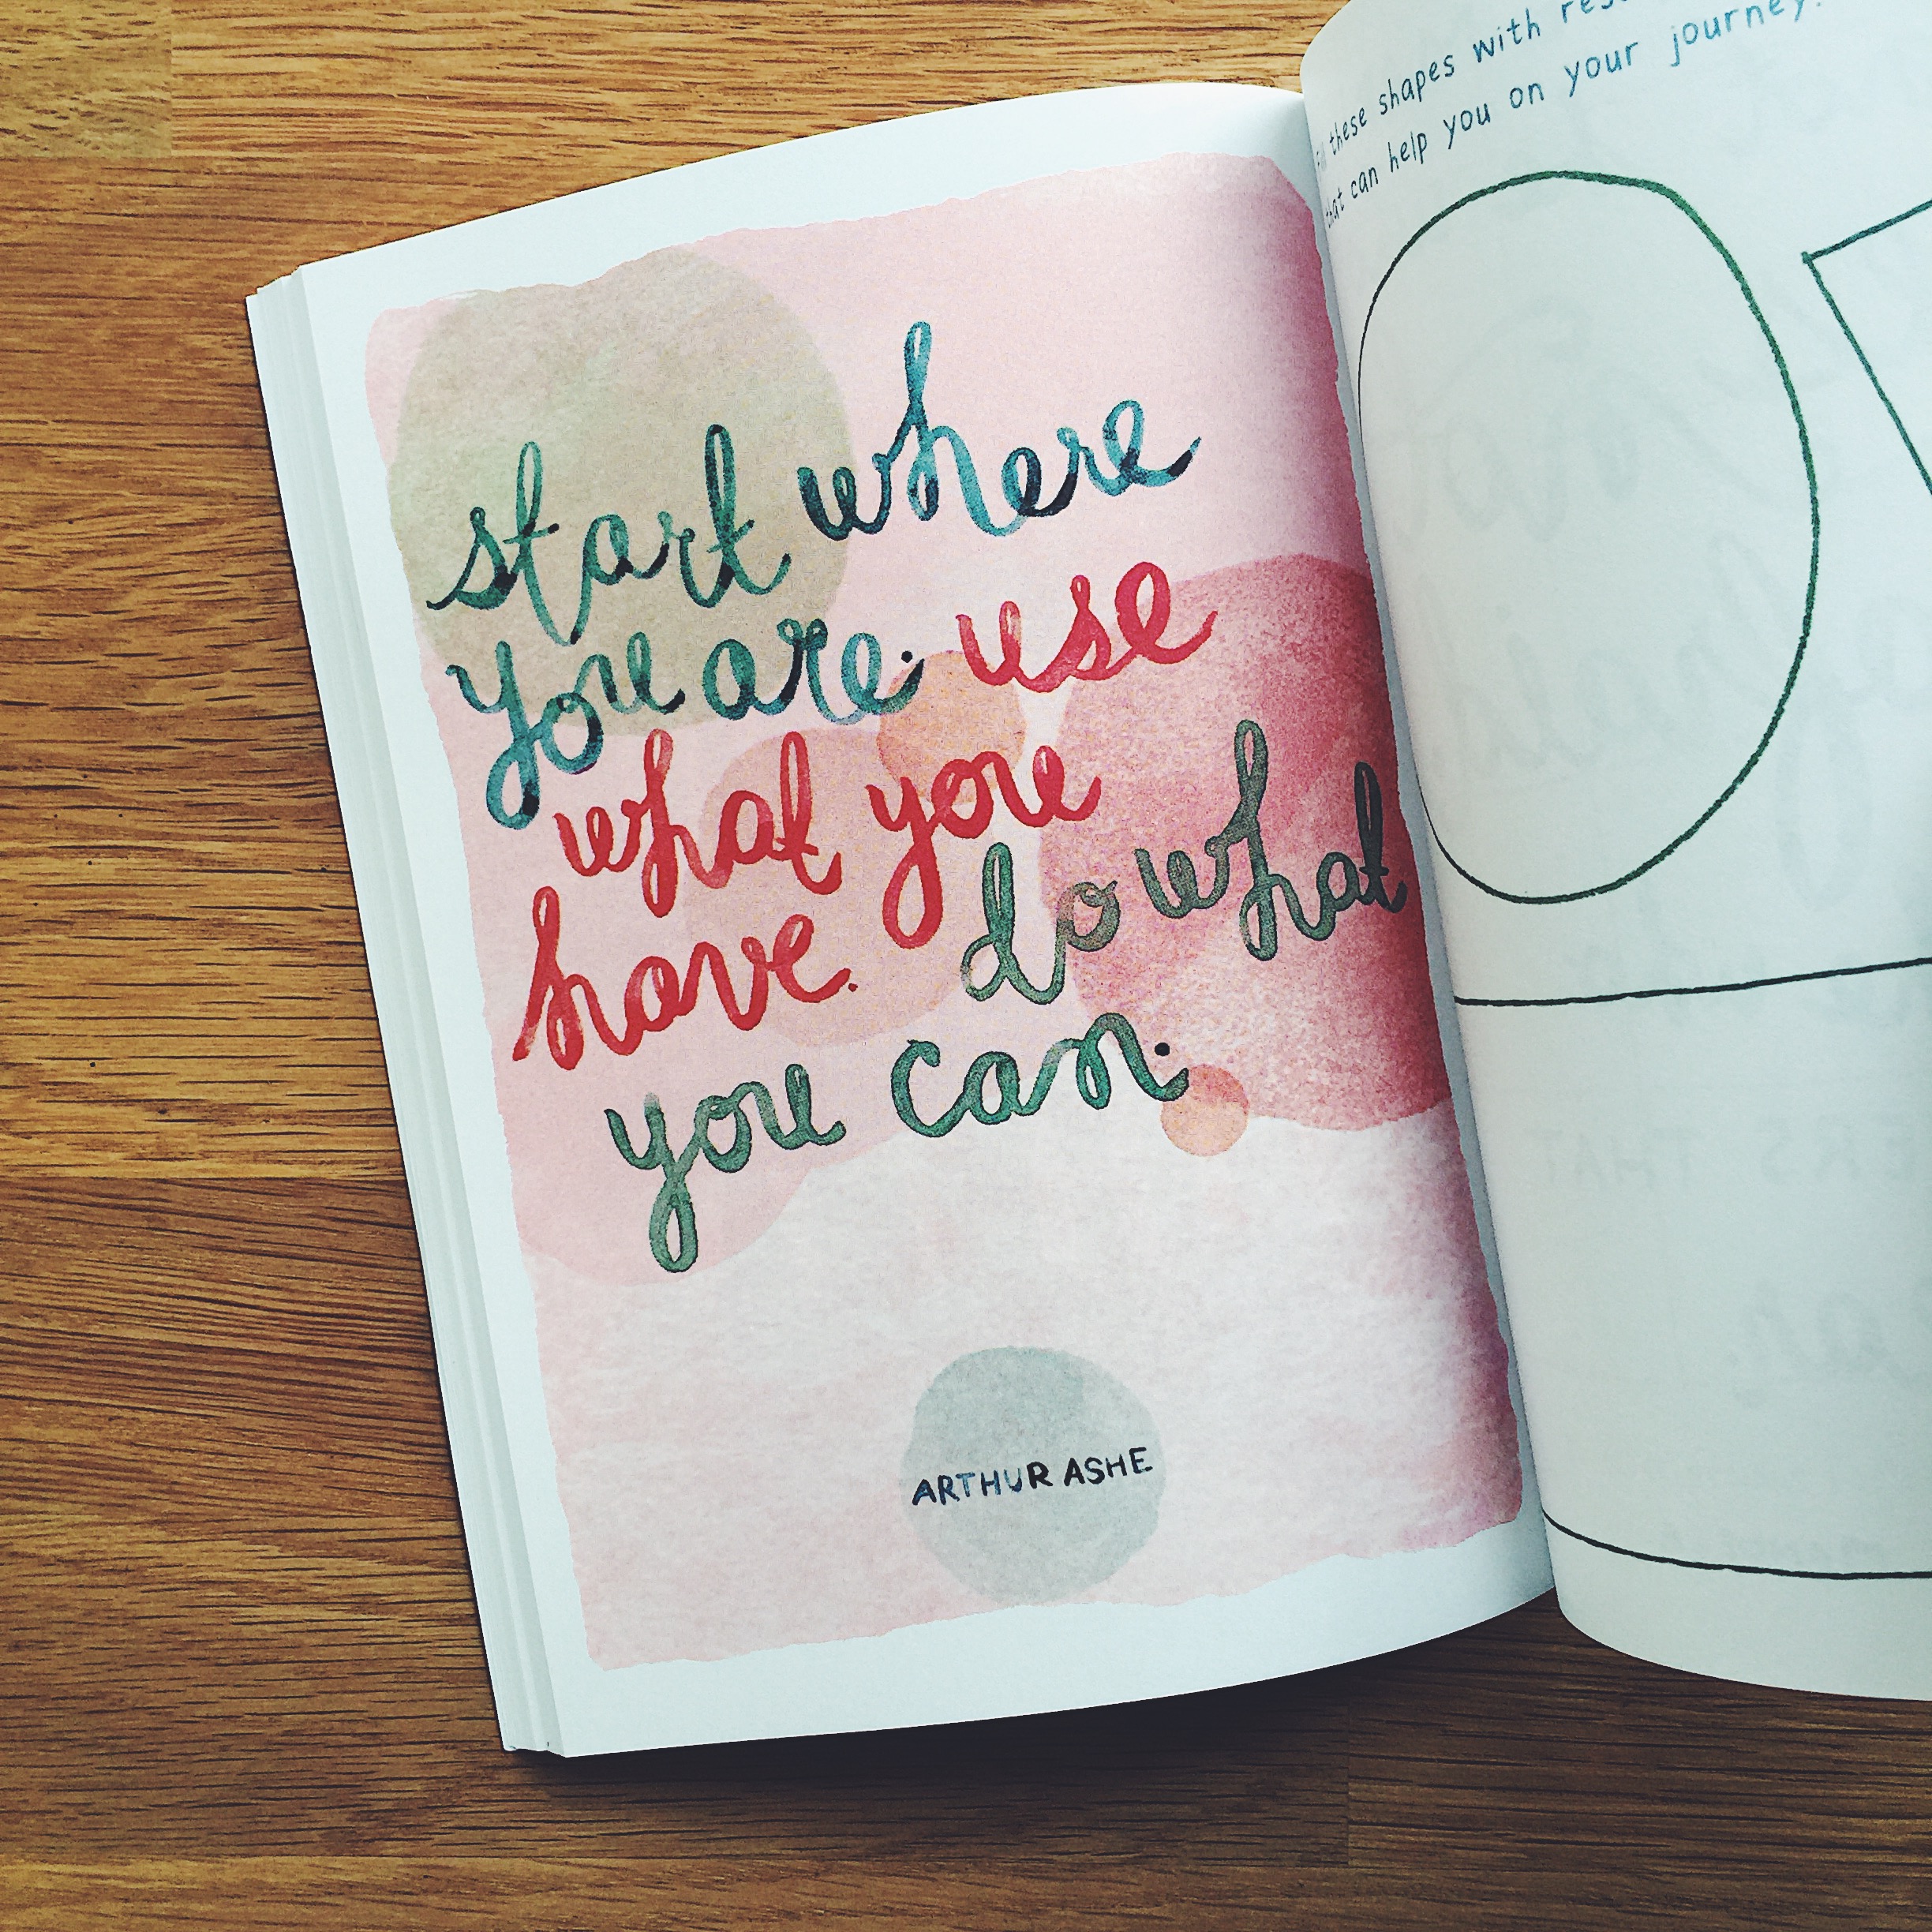 start where
you are. use
what you
have. do what
you can.
ARTHUR ASHE
Fill these shapes with
that can help you on your journey.